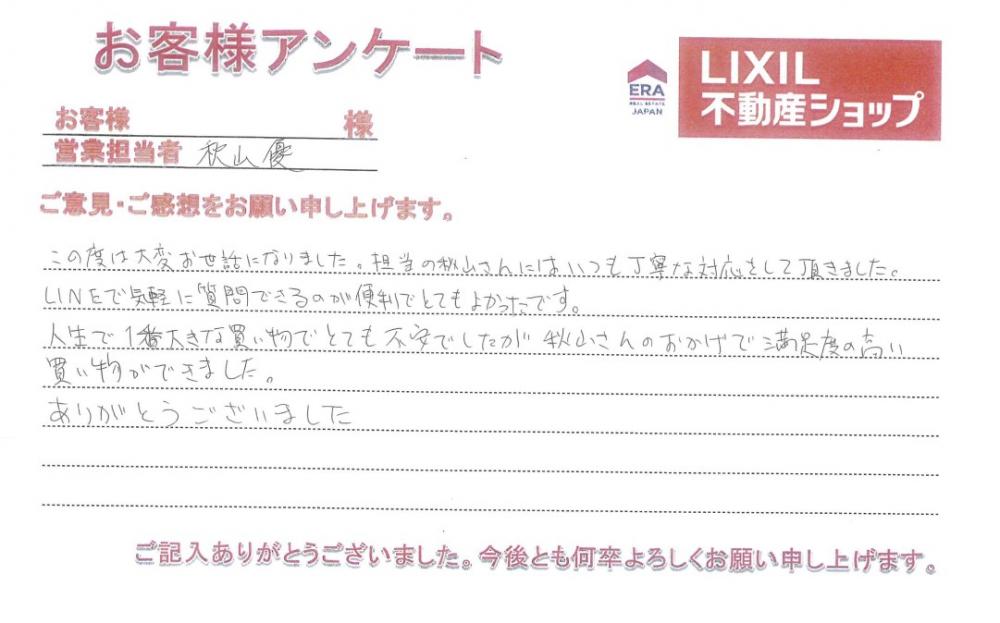 お客様アンケート
ERA
REAL ESTATE
JAPAN
LIXIL
不動産ショップ
お客様 様
営業担当者 秋山優
ご意見・ご感想をお願い申し上げます。
この度は大変お世話になりました。担当の秋山さんにはいつも丁寧な対応をして頂きました。
LINEで気軽に質問できるのが便利でとてもよかったです。
人生で1番大きな買い物でとても不安でしたが秋山さんのおかげで満足度の高い
買い物ができました。
ありがとうございました
ご記入ありがとうございました。今後とも何卒よろしくお願い申し上げます。